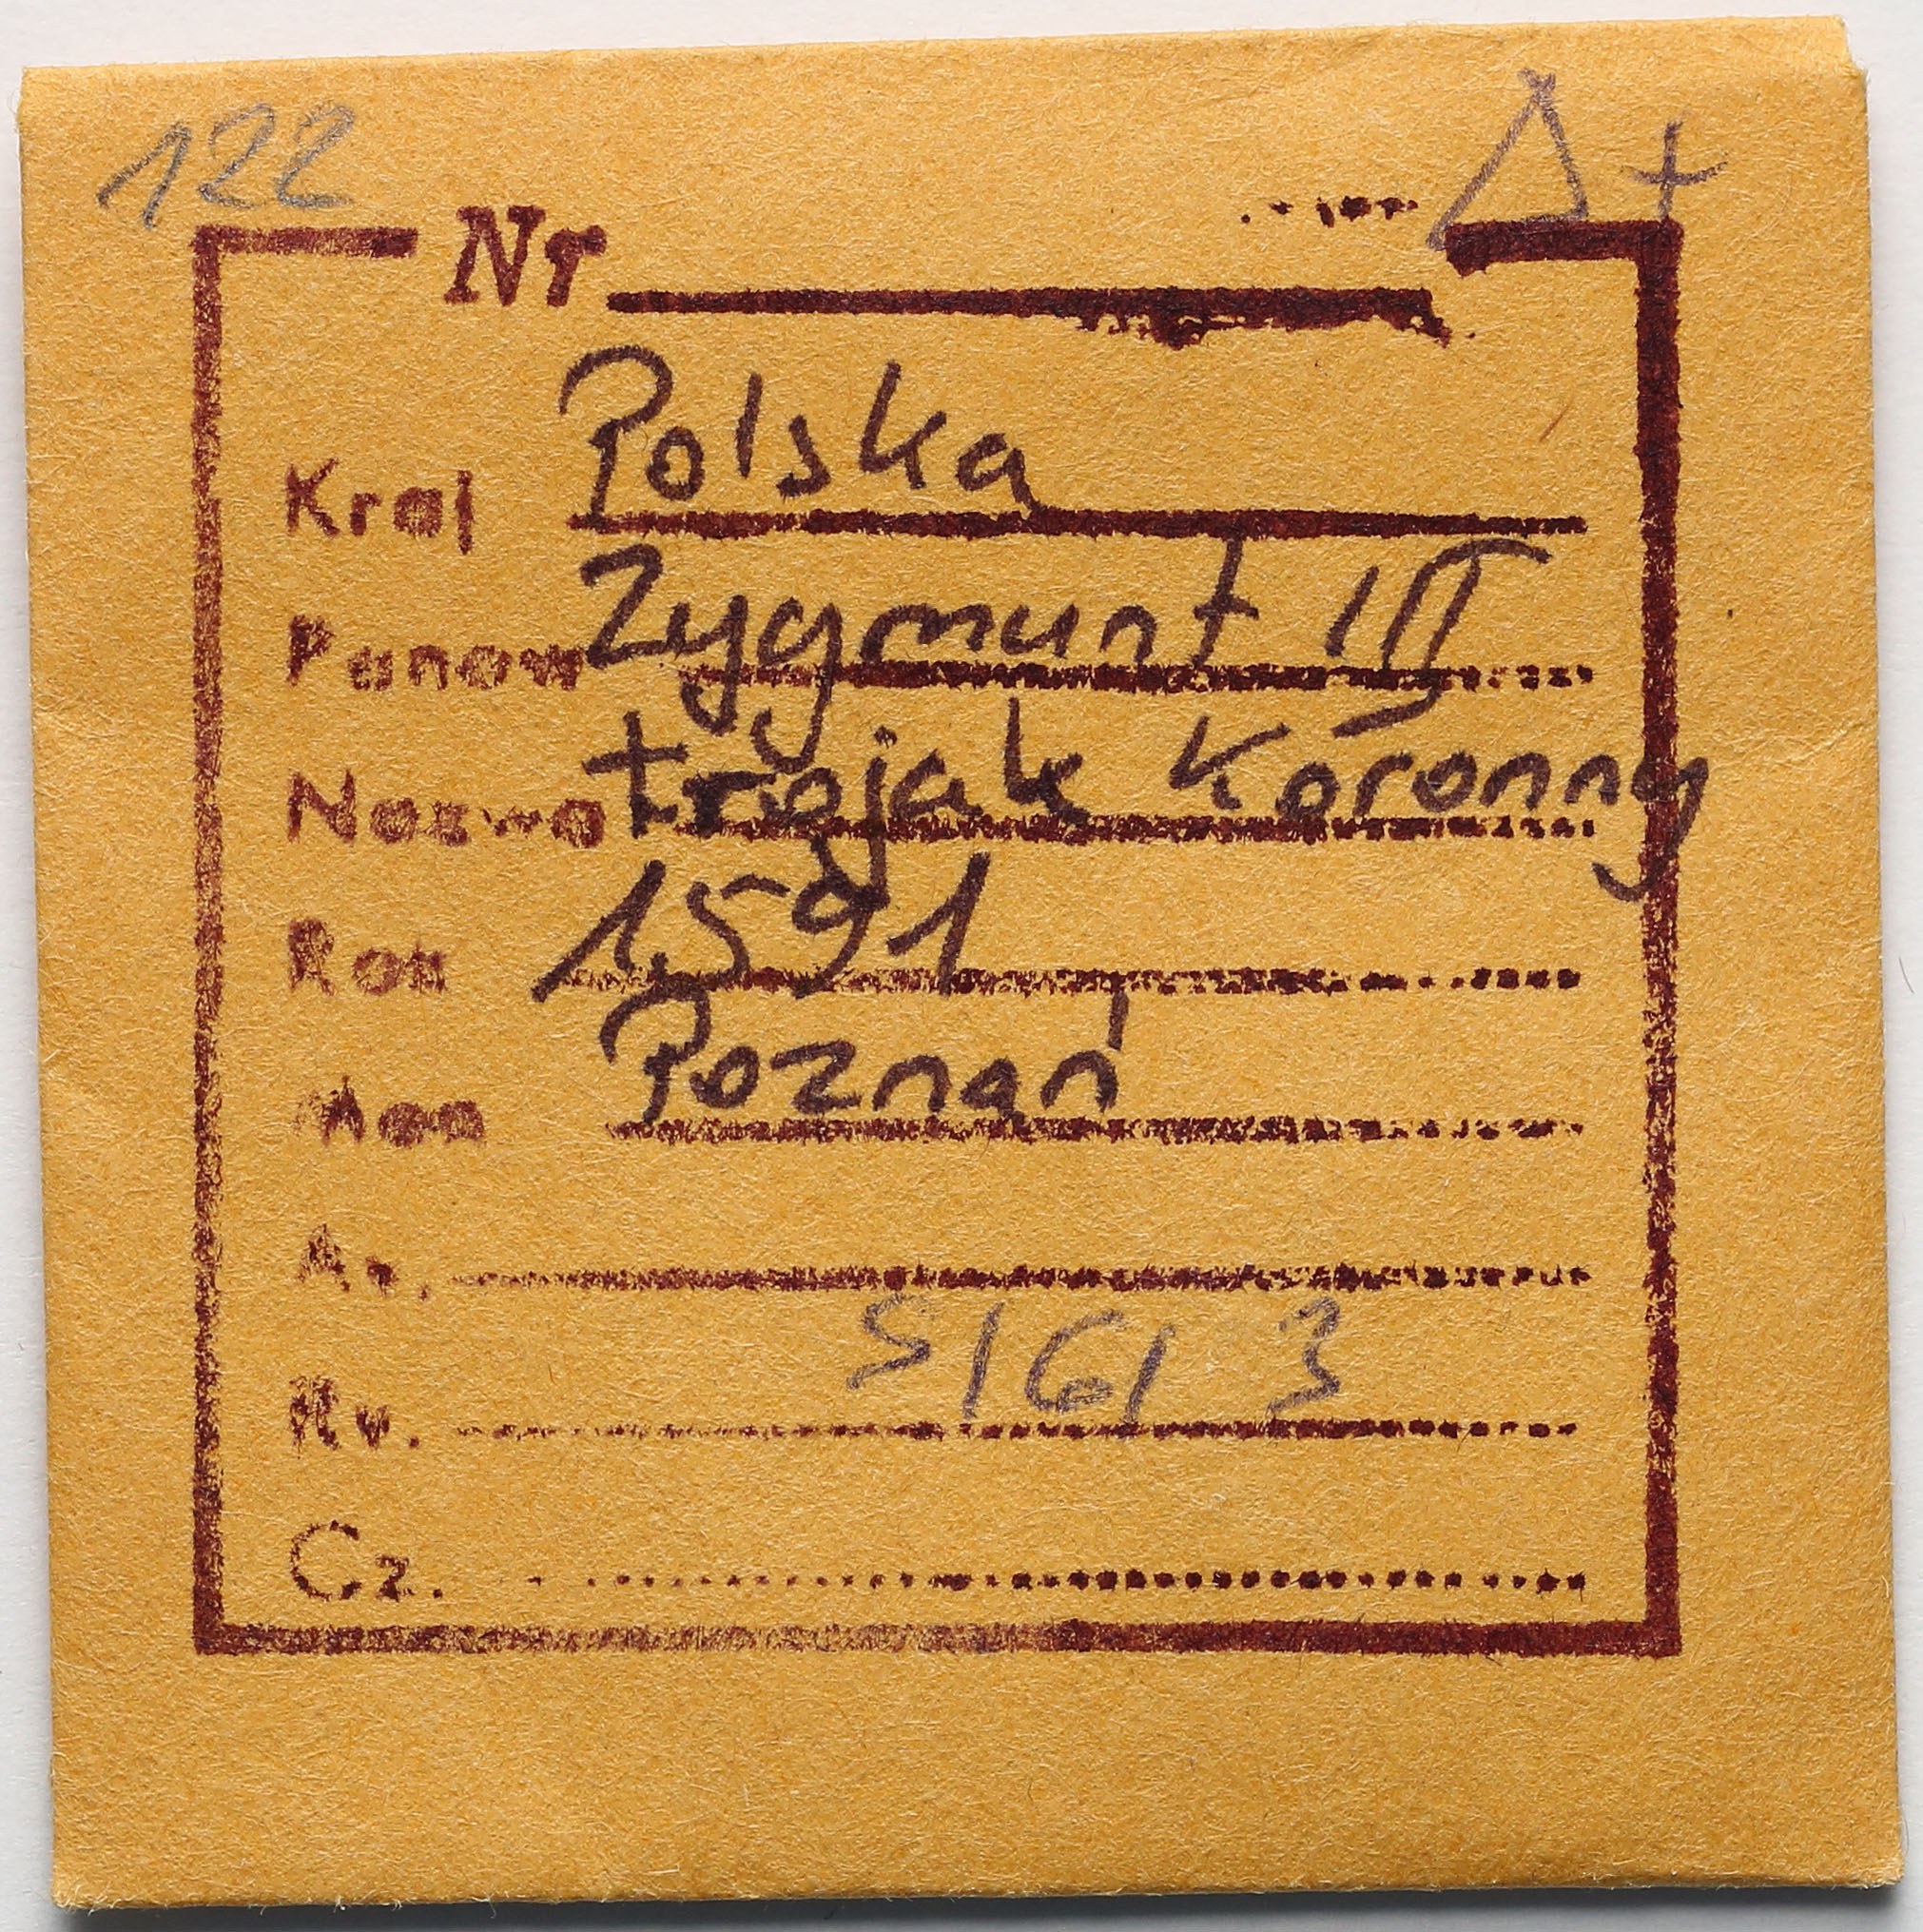 122 Δ+
Nr
Kraj Polska
Panow Zygmunt III
Nazwa trojak Koronny
Rok 1591
Men Poznań
Av.
SIGI 3
Rv.
Cz.